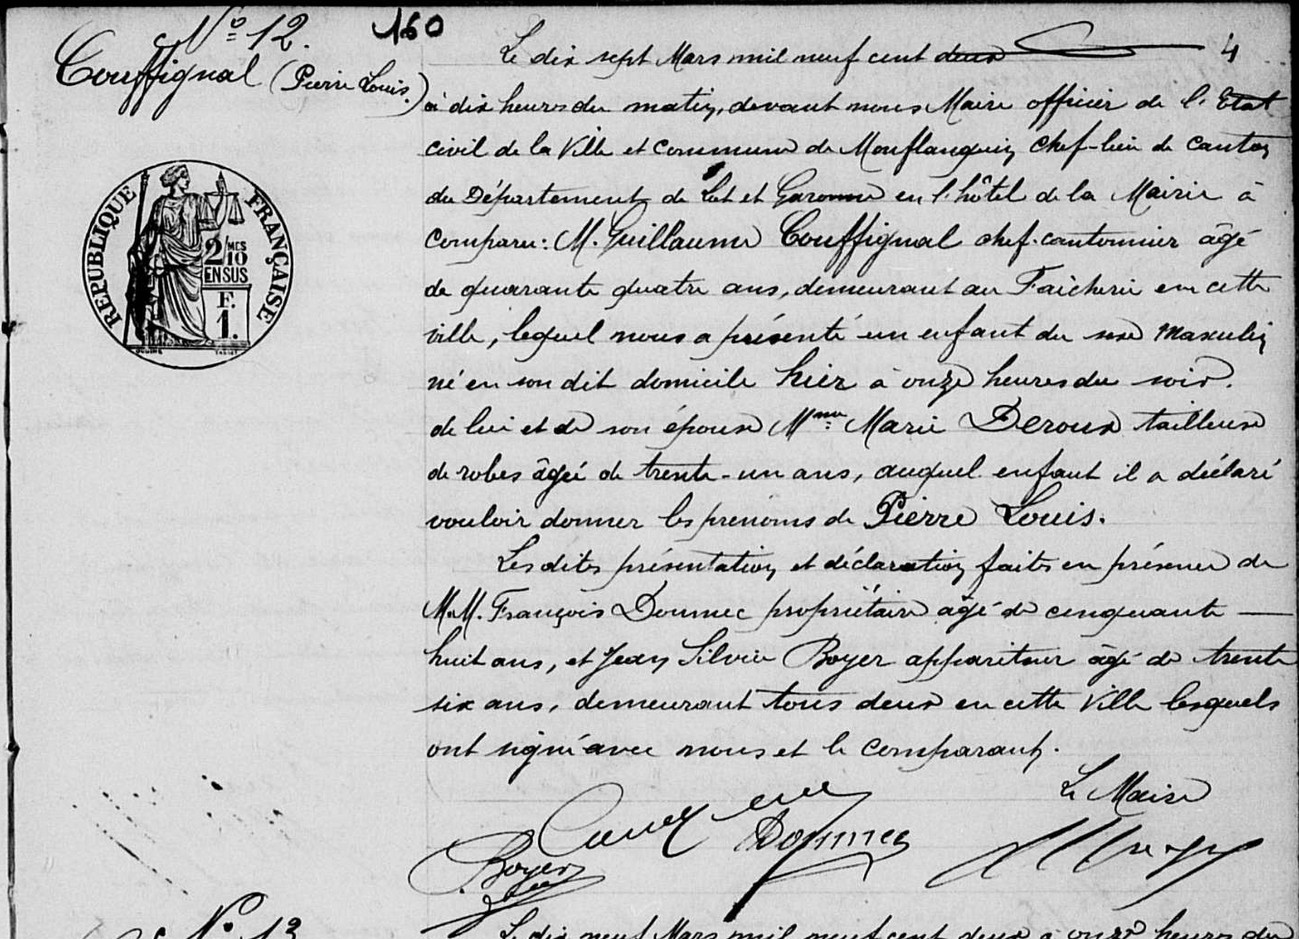 No 12.
160
Couffignal (Pierre Louis.)
4
Le dix sept Mars mil neuf cent deux
à dix heures du matin, devant nous Maire officier de l'Etat
civil de la Ville et Commune de Monflanquin chef-lieu de canton
du Département de Lot et Garonne en l'hôtel de la Mairie à
comparu: M. Guillaume Couffignal chef-cantonnier âgé
de quarante quatre ans, demeurant au en cette
ville, lequel nous a présenté un enfant du sexe masculin
né en son dit domicile hier à onze heures du soir.
de lui et de son épouse Mme Marie Deroux tailleuse
de robes âgée de trente-un ans, auquel enfant il a déclaré
vouloir donner les prenoms de Pierre Louis.
Les dites présentation et déclaration faites en présence de
M.M. François Doumec propriétaire âgé de cinquante
huit ans, et Jean Silvie Boyer appariteur âgé de trente
six ans, demeurant tous deux en cette Ville lesquels
ont signé avec nous et le comparant.
Le Maire
Doumec
Boyer
REPUBLIQUE FRANÇAISE
2/MES
10
EN SUS
F.
1.
No 13
Le dix neuf Mars mil neuf cent deux à onze heures du